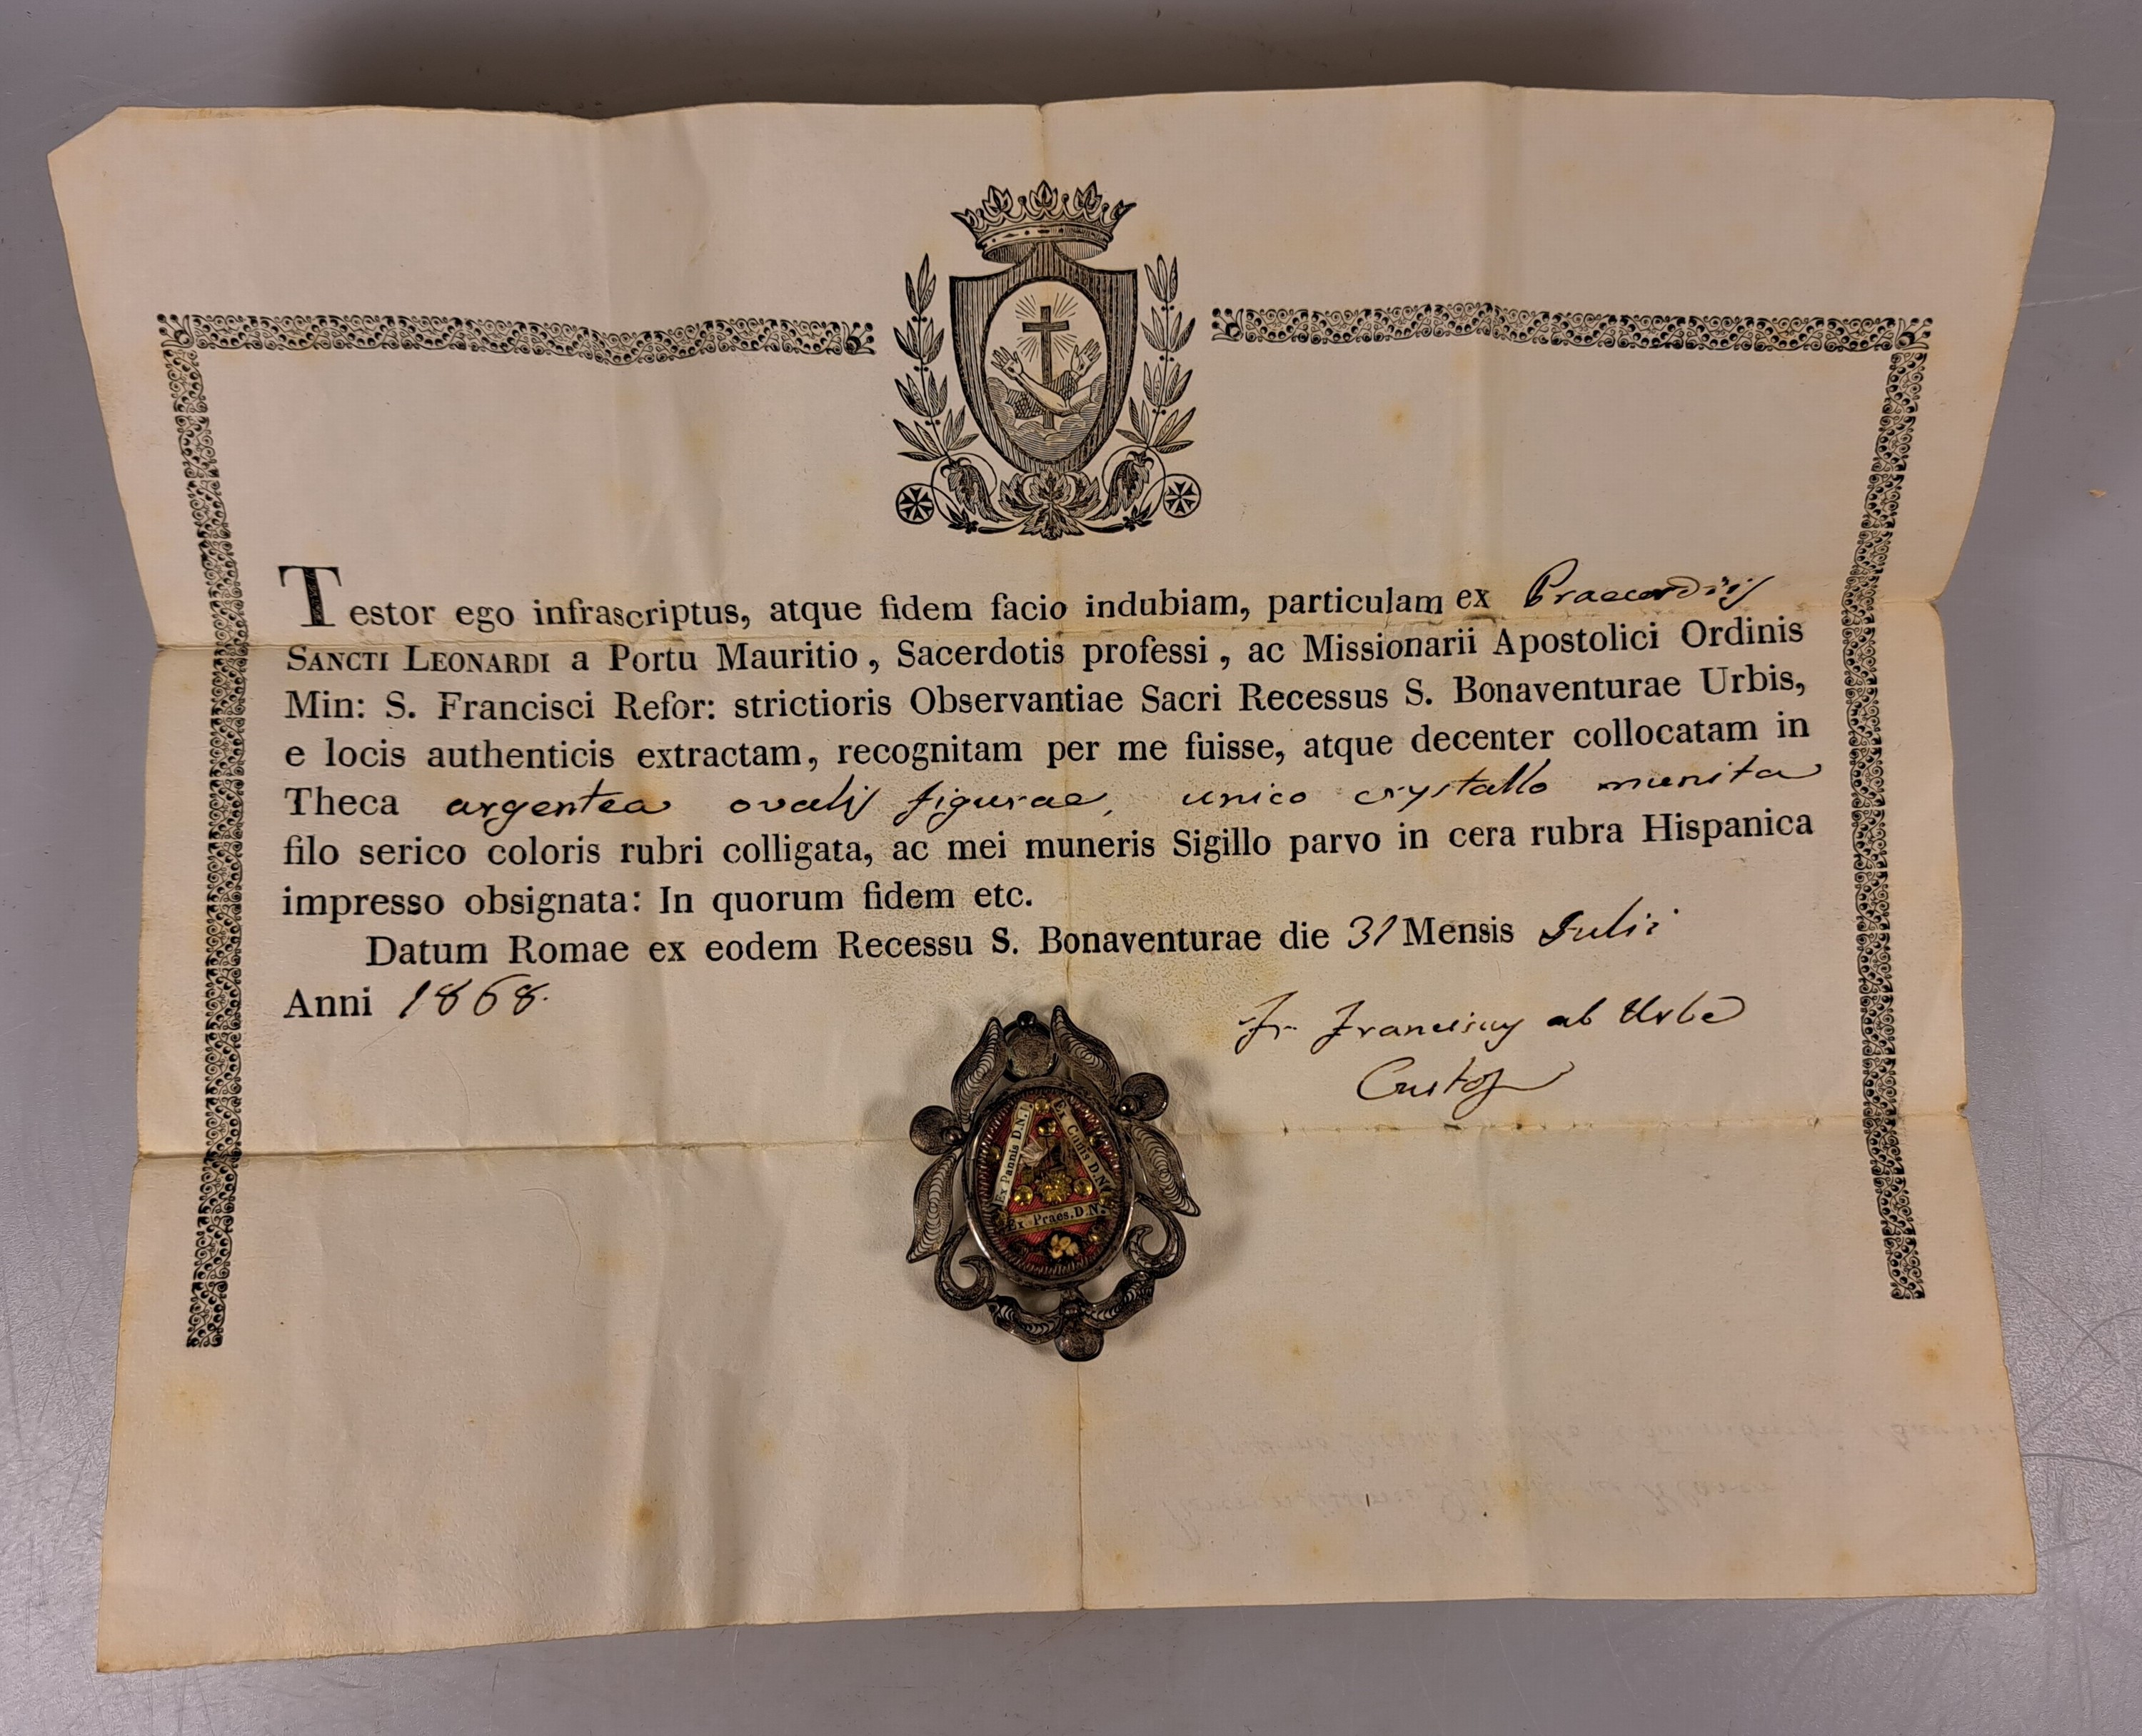 Testor ego infrascriptus, atque fidem facio indubiam, particulam ex Praecordiis
SANCTI LEONARDI a Portu Mauritio, Sacerdotis professi, ac Missionarii Apostolici Ordinis
Min: S. Francisci Refor: strictioris Observantiae Sacri Recessus S. Bonaventurae Urbis,
e locis authenticis extractam, recognitam per me fuisse, atque decenter collocatam in
Theca argentea ovalis figurae, unico crystallo munita
filo serico coloris rubri colligata, ac mei muneris Sigillo parvo in cera rubra Hispanica
impresso obsignata: In quorum fidem etc.
Datum Romae ex eodem Recessu S. Bonaventurae die 31 Mensis Julii
Anni 1868.
Fr. Franciscus ab Urbe
Custos
Ex Pannis D.N.
Ex Cunis D.N.
Ex Praes. D.N.